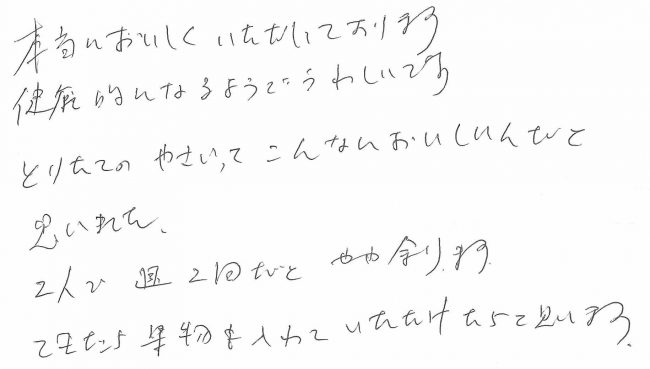 本当においしくいただいております
健康的になるようでうれしいです
とりたてのやさいってこんなにおいしいんだと
思いました。
2人で週2回だとやや余ります。
できたら果物も入れていただけたらと思います。